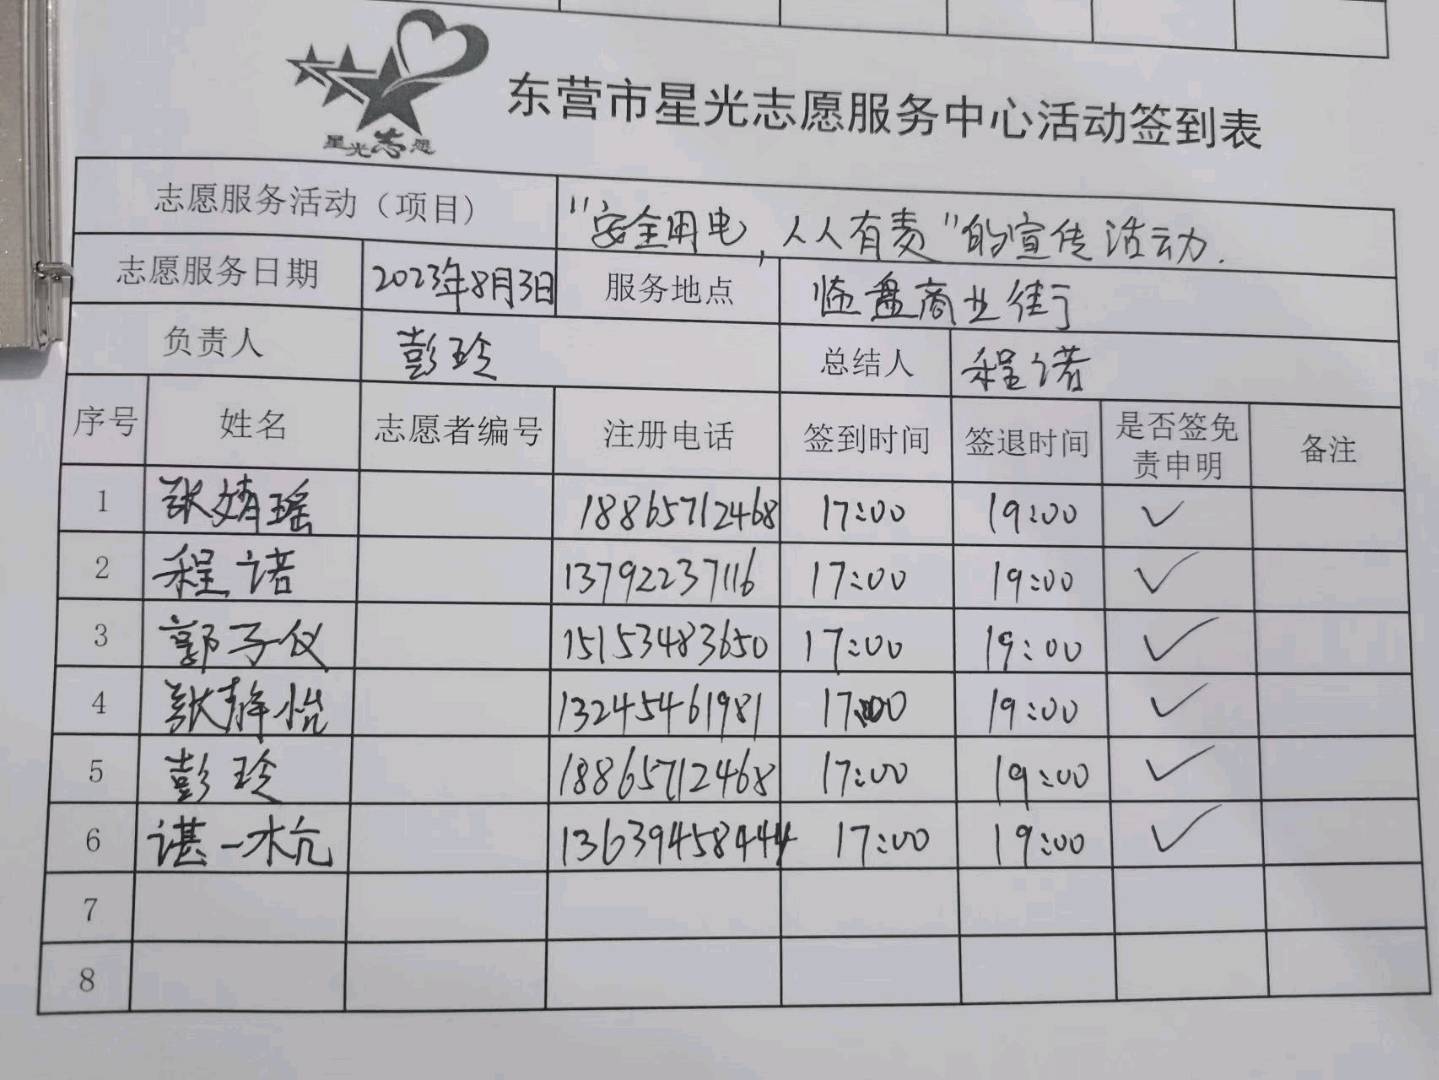 星光志愿
东营市星光志愿服务中心活动签到表
志愿服务活动（项目） “安全用电，人人有责”的宣传活动.
志愿服务日期 2023年8月3日 服务地点 临盘商业街
负责人 彭玲 总结人 程诺
序号 姓名 志愿者编号 注册电话 签到时间 签退时间 是否签免责申明 备注
1 张婧瑶 18865712468 17:00 19:00 ✓
2 程诺 13792237116 17:00 19:00 ✓
3 郭子仪 15153483650 17:00 19:00 ✓
4 张静怡 13245461981 17:00 19:00 ✓
5 彭玲 18865712468 17:00 19:00 ✓
6 谌一杭 13639458444 17:00 19:00 ✓
7
8